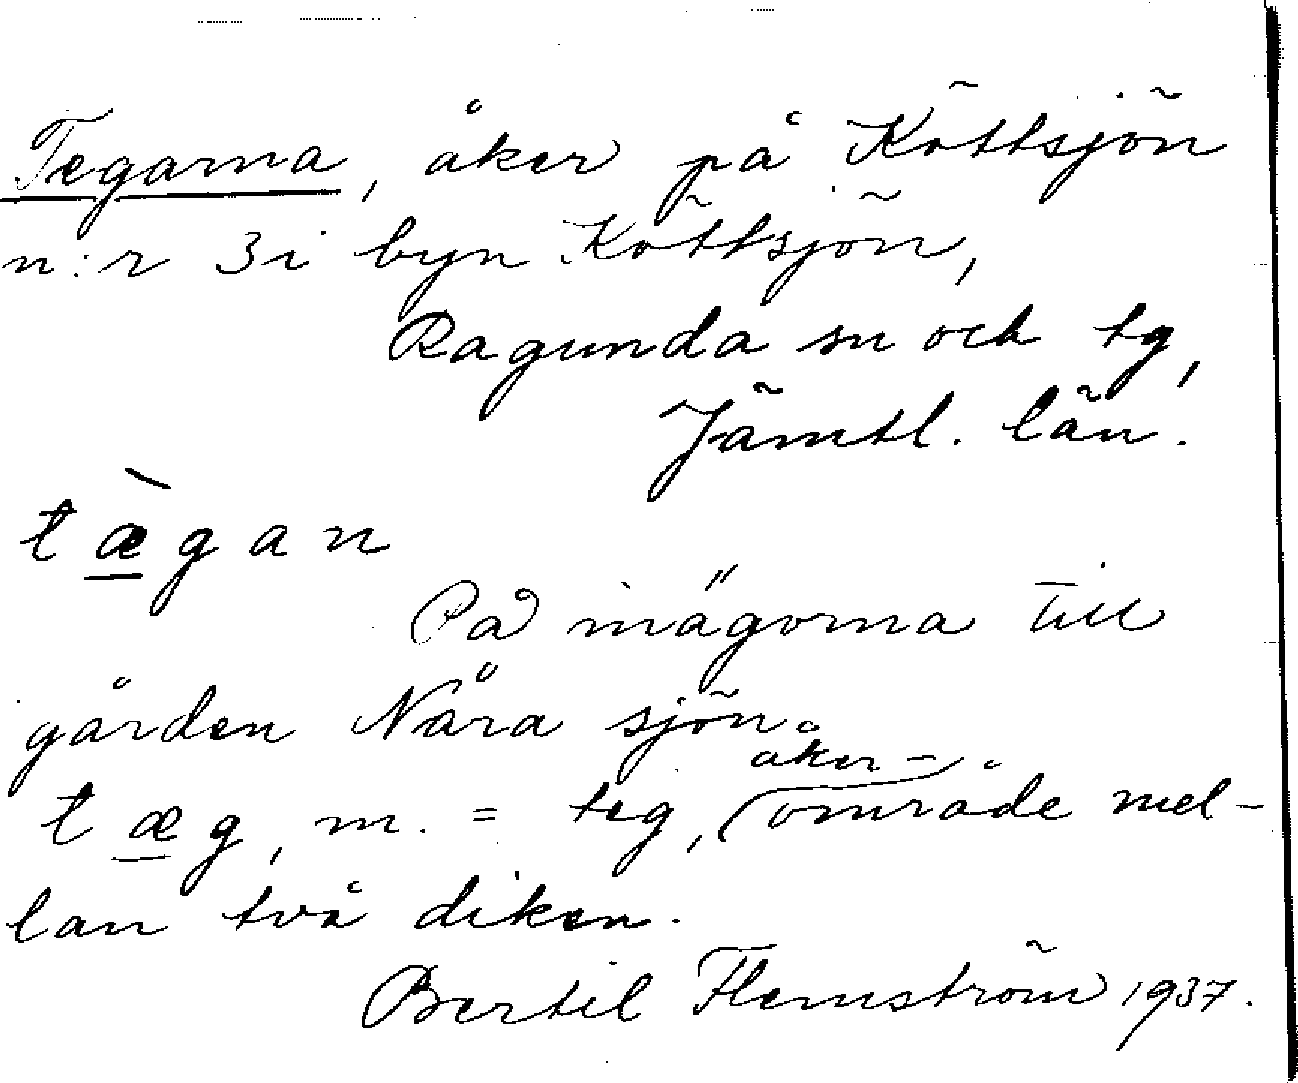 Tegarna, åker på Köttsjön
n:r 3 i byn Köttsjön,
Ragunda sn och tg,
Jämtl. län.
tæ̀gan
På inägorna till
gården Nära sjön.
tæg, m. = teg, åker-
område mel-
lan två diken.
Bertil Flemström 1937.